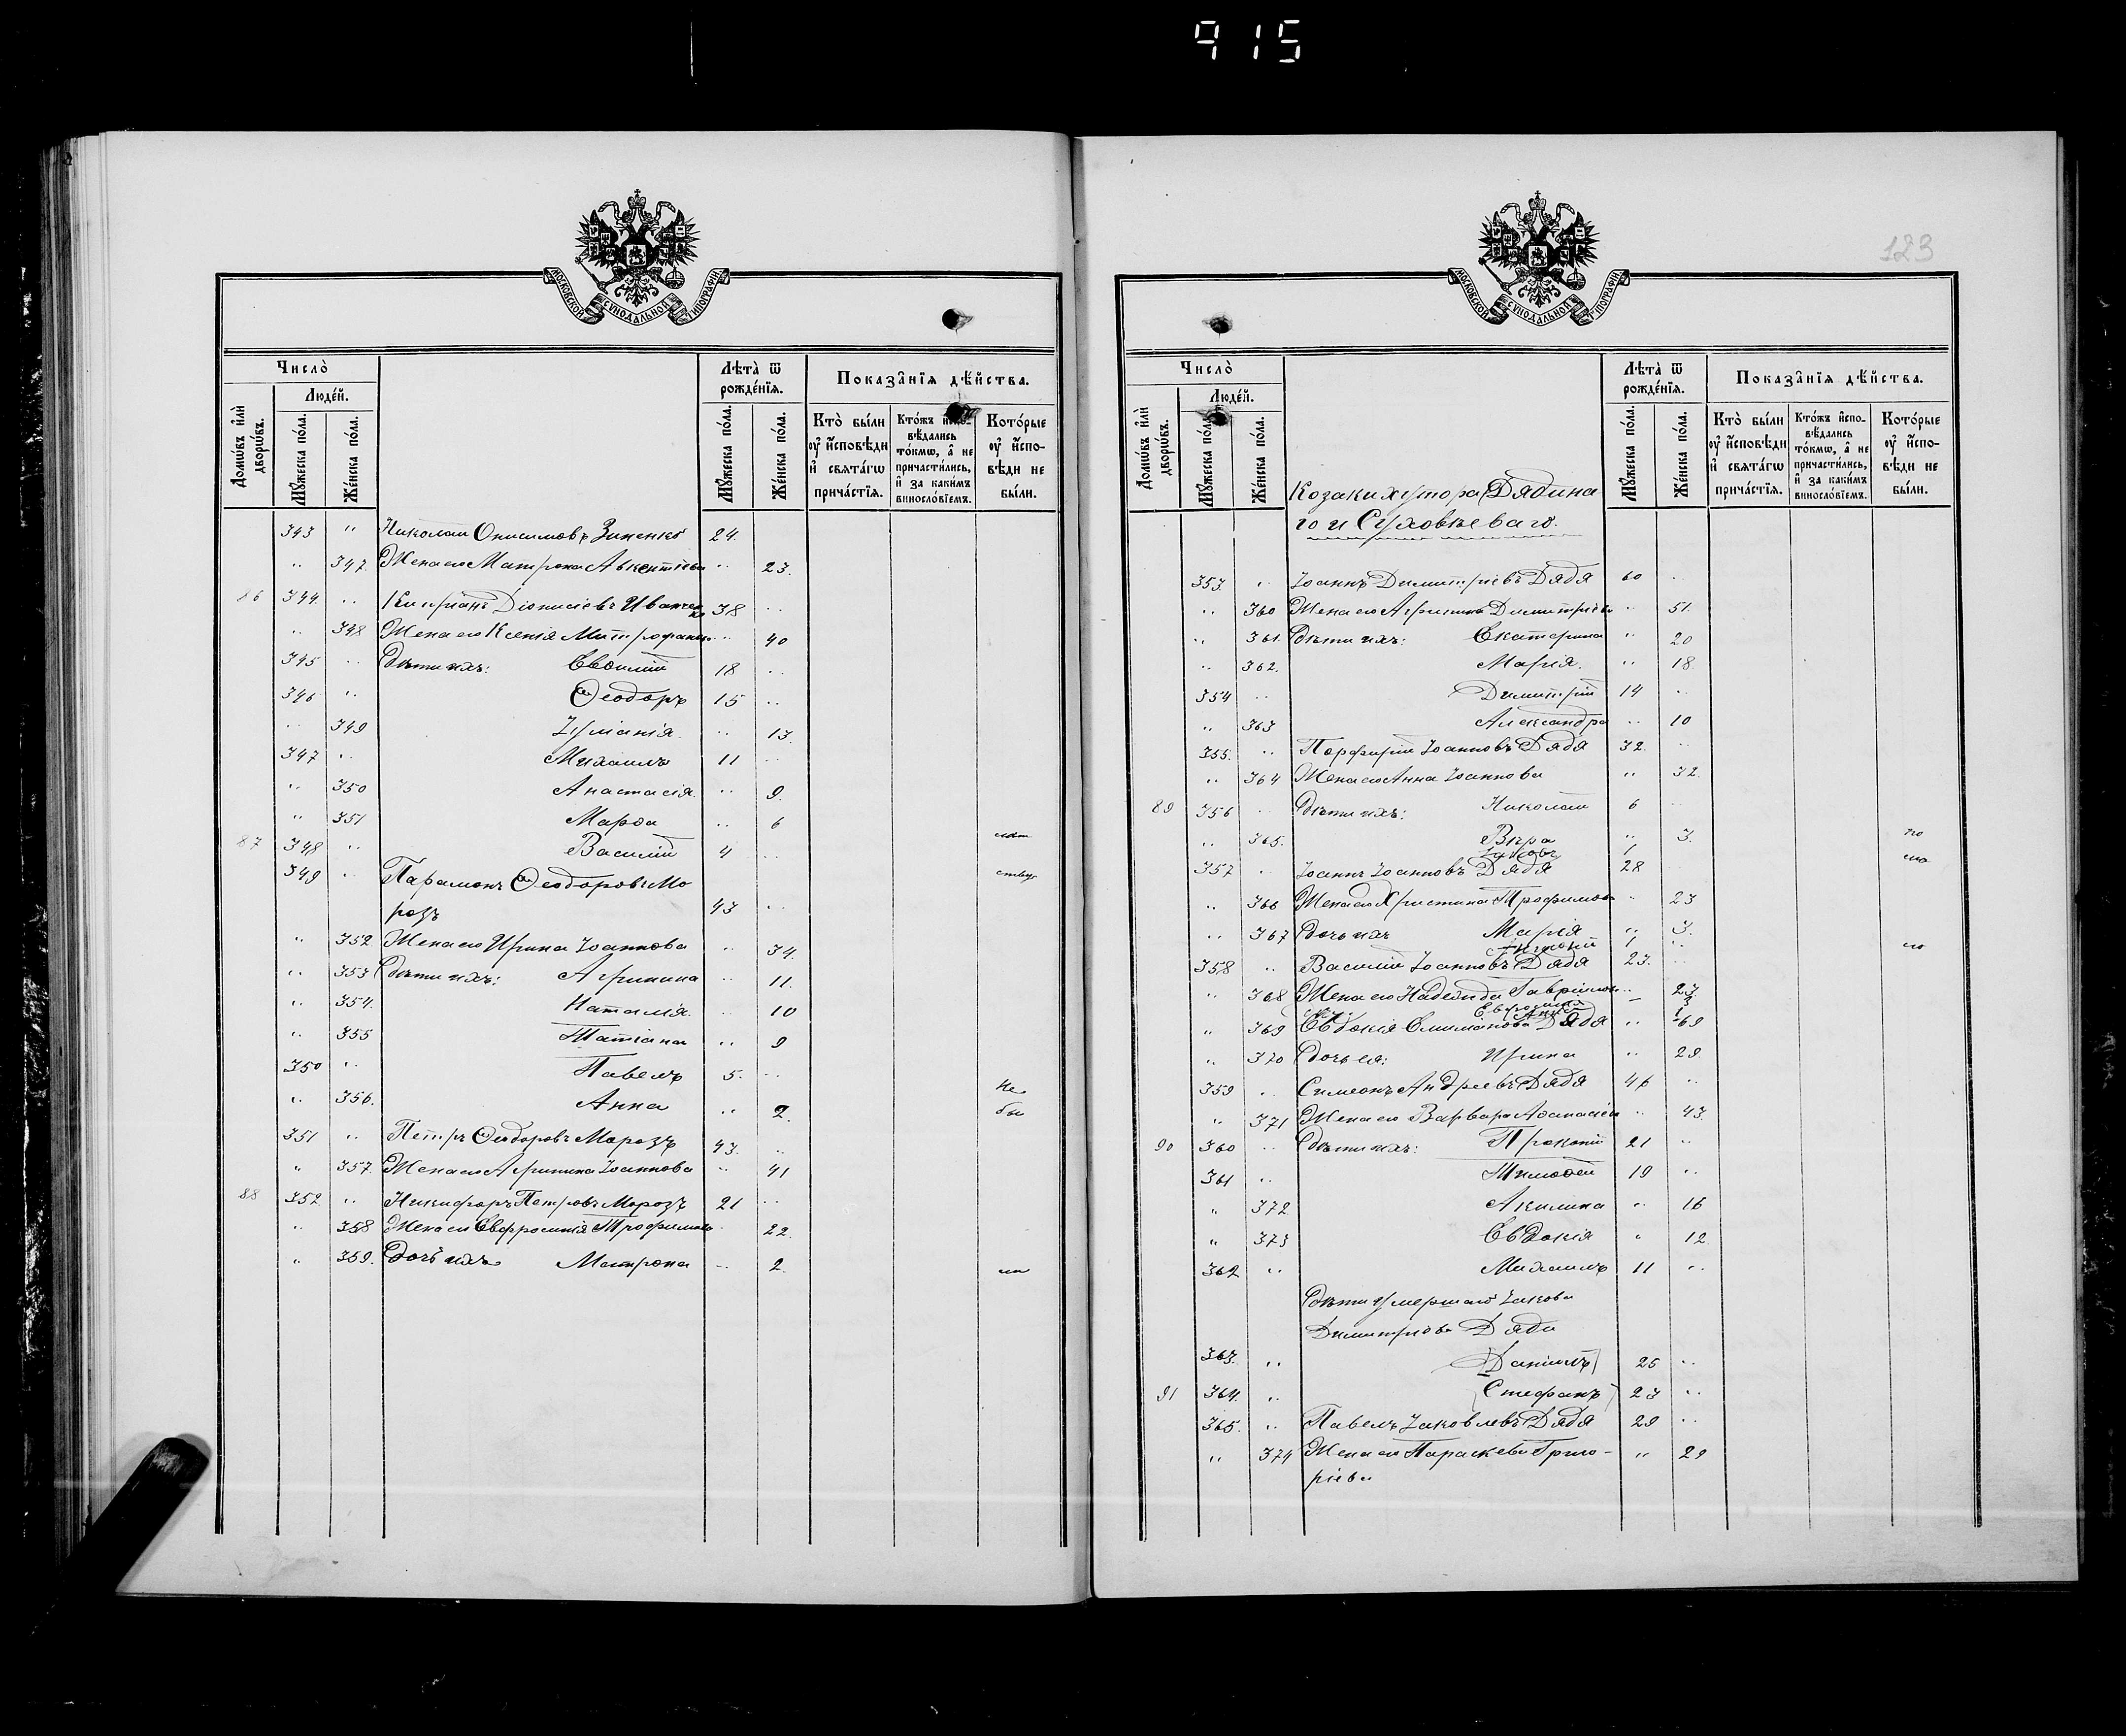 915
МОСКОВСКОЙ СУНОДАЛЬНОЙ ТИПОГРАФІИ
Число̀
Домѡ́въ и҆лѝ дворѡ́въ.
Люде́й.
Мꙋ́жеска по́ла.
Же́нска по́ла.
Лѣта̀ ѿ рожде́нїѧ.
Мꙋ́жеска по́ла.
Же́нска по́ла.
Показа̑нїѧ дѣ́йства.
Кто̀ бы́ли ᲂу҆ и҆сповѣди и҆ свѧта́гѡ прича́стїѧ.
Кто́жъ и҆спо- вѣ́дались то́кмѡ, а҆ не причасти́лись, и҆ за каки́мъ винослѻ́вїемъ.
Кото́рые ᲂу҆ и҆спо- вѣ́ди не бы́ли.
343 " Николай Онисимовъ Зиненко 24.
" 347. Жена его Матрона Авксентіева " 23.
86 344. " Кипріанъ Діонисіевъ Иванченко 38 "
" 348 Жена его Ксенія " 40
345 " Дѣти ихъ: Евѳимій 18 "
346 " Ѳеодоръ 15 "
" 349 Іуліанія " 13.
347 " Михаилъ 11 "
" 350 Анастасія " 9.
" 351 Марѳа " 6
87 348 " Василій 4 "
349 " Парамонъ Ѳеодоровъ Мо
розъ 43 "
" 352 Жена его Ирина Іоаннова " 34.
" 353 Дѣти ихъ: Агрипина " 11.
" 354. Наталія " 10
" 355 Татіана " 9
350 " Павелъ 5. " Не
" 356. Анна " 2. бы
351 " Петръ Ѳеодоровъ Морозъ 43. "
" 357. Жена его Агрипина Іоаннова " 41
88 352 " Никифоръ Петровъ Морозъ 21 "
" 358 Жена его Евфросинія Трофимова " 22.
" 359. Дочь ихъ Матрона " 2. ли
123
МОСКОВСКОЙ СУНОДАЛЬНОЙ ТИПОГРАФІИ
Число̀
Домѡ́въ и҆лѝ дворѡ́въ.
Люде́й.
Мꙋ́жеска по́ла.
Же́нска по́ла.
Лѣта̀ ѿ рожде́нїѧ.
Мꙋ́жеска по́ла.
Же́нска по́ла.
Показа̑нїѧ дѣ́йства.
Кто̀ бы́ли ᲂу҆ и҆сповѣди и҆ свѧта́гѡ прича́стїѧ.
Кто́жъ и҆спо- вѣ́дались то́кмѡ, а҆ не причасти́лись, и҆ за каки́мъ винослѻ́вїемъ.
Кото́рые ᲂу҆ и҆спо- вѣ́ди не бы́ли.
Козаки хутора Дядина
го и
353. " Іоаннъ Димитріевъ Дядя 60 "
" 360 Жена его Агрипина Димитріева " 51.
" 361 Дѣти ихъ: Екатерина " 20
" 362. Марія. " 18.
354 " Димитрій 14 "
" 363 Александра " 10
355. " Порфирій Іоанновъ Дядя 32. "
" 364 Жена его Анна Іоаннова " 32.
89 356 " Дѣти ихъ: Николай 6 "
" 365. Вѣра " 3.
Іаковъ 1
357 " Іоаннъ Іоанновъ Дядя 28
" 366 Жена его Христина Трофимова " 23
" 367 Дочь ихъ Марія " 3.
1 "
358 " Василій Іоанновъ Дядя 23. "
" 368 Жена его Надежда Гавріилова " 23.
" 369 Евдокія Дядя " 69
" 370 Дочь ея: Ирина " 29.
359 " Симеонъ Андреевъ Дядя 46 "
" 371 Жена его Варвара Аѳанасіева " 43.
90 360 " Дѣти ихъ: Прокопій 21 "
361 " Тимоѳей 19 "
" 372 Акилина " 16
" 373 Евдокія " 12
362 " Михаилъ 11 "
Дѣти умершаго Іакова
Димитріева Дяди
363. " Даніилъ 25 "
91 364. " Стефанъ 23 "
365. " Павелъ Іаковлевъ Дядя 29 "
" 374 Жена его Параскева Григо-
ріева " 29